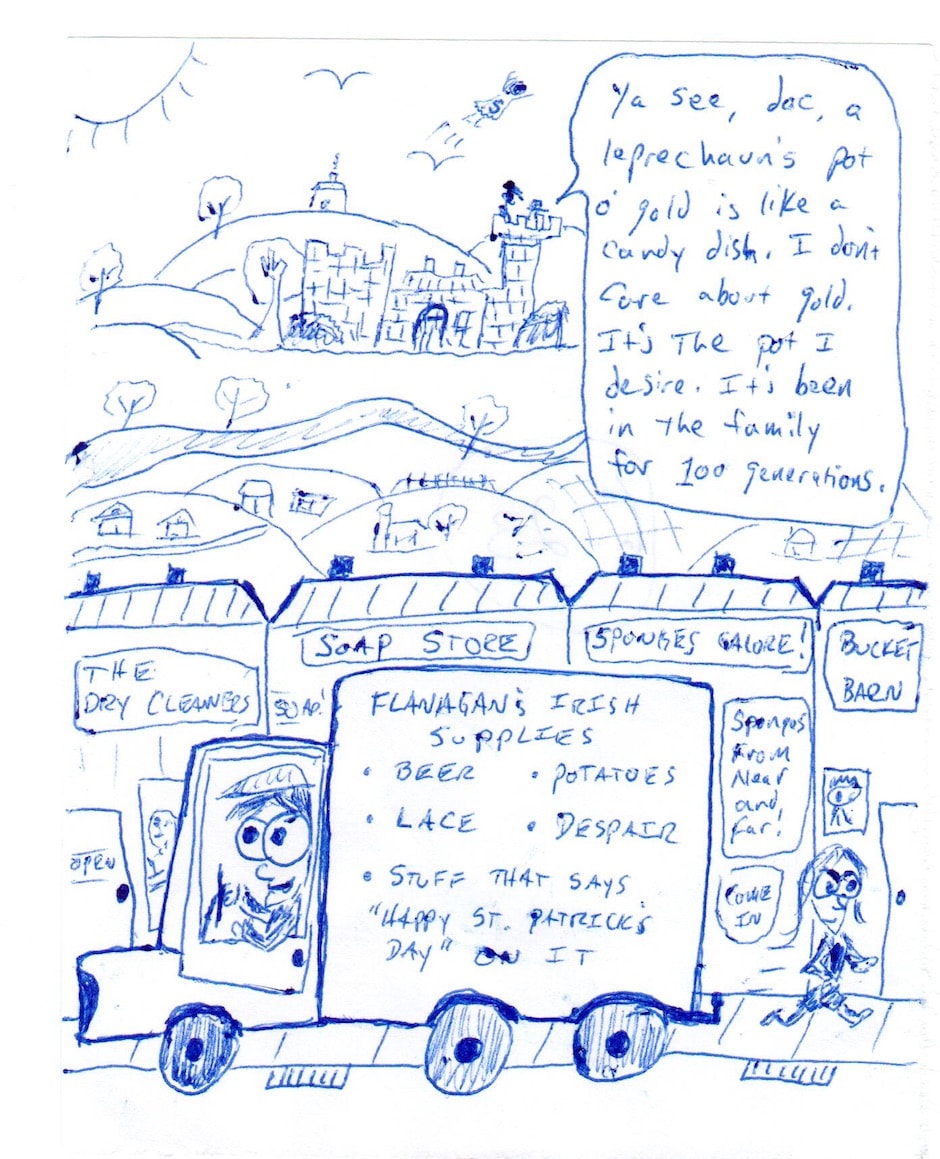 S
Ya see, doc, a
leprechaun's pot
o' gold is like a
candy dish. I don't
care about gold.
It's the pot I
desire. It's been
in the family
for 100 generations.
THE
DRY CLEANERS
SOAP STORE
SPONGES GALORE!
BUCKET
BARN
SOAP!
FLANAGAN'S IRISH
SUPPLIES
• BEER • POTATOES
• LACE • DESPAIR
• STUFF THAT SAYS
"HAPPY ST. PATRICK'S
DAY" ON IT
Sponges
From
Near
and
Far!
OPEN
COME
IN